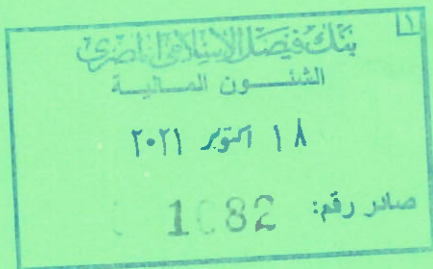 بنك فيصل الإسلامي المصرى
الشئون المالية
١٨ اكتوبر ٢٠٢١
صادر رقم: 1082